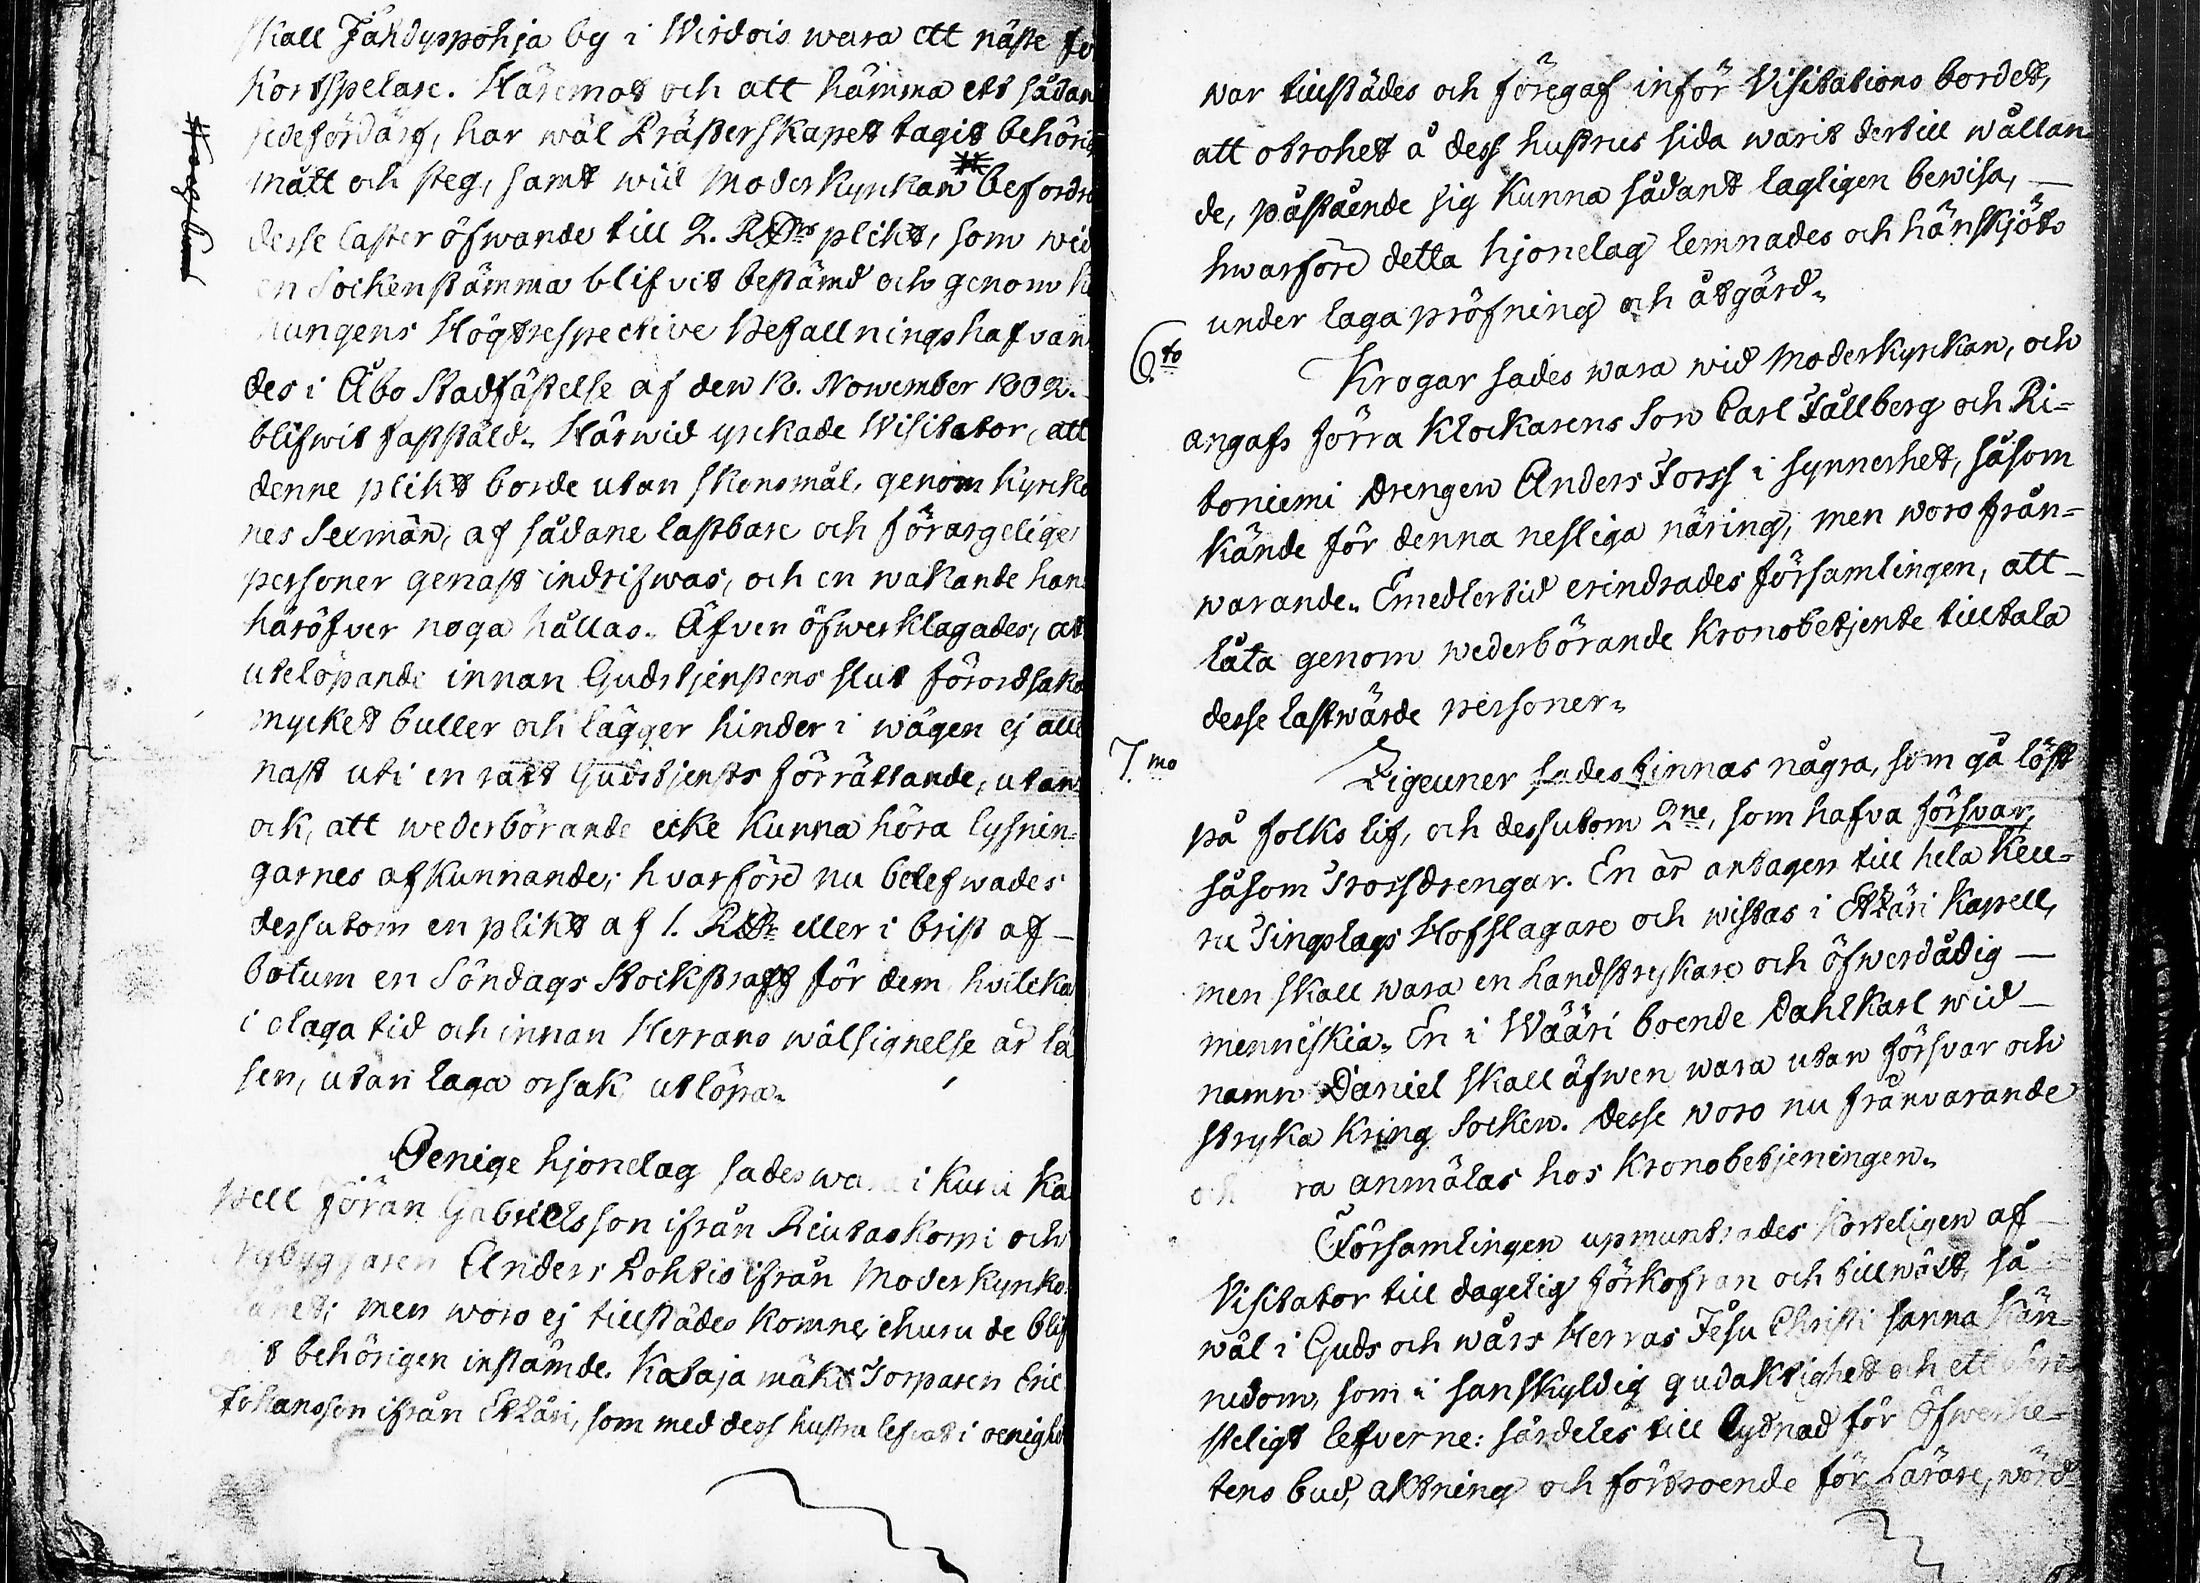 skall Jäkdyspohja by i Wirdois wara ett näste fö
Kortspelare. Häremot och att hämma ett sådan
sedefördärf, har wäl Prästerskapet tagit behöri
mått och steg, samt wid Moderkyrkan # befordra
desse laster öfwande till 2. Rdrs plikt, som wid
en Sockenstämma blifvit bestämd och genom K
nungens Högtrespective Befallningshafvan
des i Åbo Stadfästelse af den 18. November 1802.
blifwit fastställd. Härwid yrkade Visitator, att
denne plikt borde utan skonsmål, genom Kyrko
nes Sexmän, af sådane lastbare och förargelige
personer genast indrifwas, och en wakande han
häröfver noga hållas. Äfven öfwerklagades, at
utelöpande innan Gudstjenstens slut förordsaka
mycket buller och lägger hinder i wägen ej alle
nast uti en rätt Gudstjensts förrättande, utan
ock, att wederbörande icke kunna höra lysnin-
garnes afkunnande; hvarföre nu belefwades
dessutom en plikt af 1. Rdr eller i brist af
botum en Söndags Stockstraff för dem hvilka
i olaga tid och innan Herrans wälsignelse är lä
sen, utan laga orsak utlöpa.
Oenige hjonelag sades wara i Kuru Ka
pell Jöran Gabrielsson ifrån Riutaskorpi och
Nybyggaren Anders Lohtis ifrån Moderkyrko
länet; men woro ej tillstädes komne, ehuru de blif
wit behörigen instämde. Katajamäki Torparen Eric
Johansson ifrån Etzäri, som med dess hustru lefvat i oenighe
war tillstädes och föregaf inför Visitations bordet,
att otrohet å dess hustrus sida warit dertill wållan-
de, påstående sig kunna sådant lagligen bewisa,
hwarföre detta hjonelag lemnades och hänskjöts
under laga pröfning och åtgärd.
6.to
Krogar sades wara wid Moderkyrkan, och
angafs förra Klockarens Son Carl Fällberg och Ri-
toniemi Drengen Anders Forss i synnerhet, såsom
kände för denna nesliga näring, men woro från-
warande. Emedlertid erindrades församlingen, att
låta genom wederbörande Kronobetjente tilltala
desse lastwärde personer.
7.mo
Zigeuner sades finnas några, som gå löst
på folks lif, och dessutom 2ne, som hafva försvar,
såsom Trossdrengar. En är antagen till hela Keu-
ru Tingslags Hofslagare och wistas i Etzäri Kapell,
men skall wara en Landstrykare och öfwerdådig
menniskia. En i Wääri boende Dahlkarl wid
namn Daniel skall äfwen wara utan försvar och
stryka kring Socken. Desse woro nu frånvarande
och ra anmälas hos Kronobetjeningen.
Församlingen upmuntrades korteligen af
Visitator till dagelig förkofran och tillwäxt, så
wäl i Guds och wårs Herras Jesu Christi sanna kän-
nedom, som i sanskyldig gudaktighet och ett chri-
steligt lefverne: särdeles till lydnad för Öfwerhe-
tens bud, aktning och förtroende för Lärare, wörd-